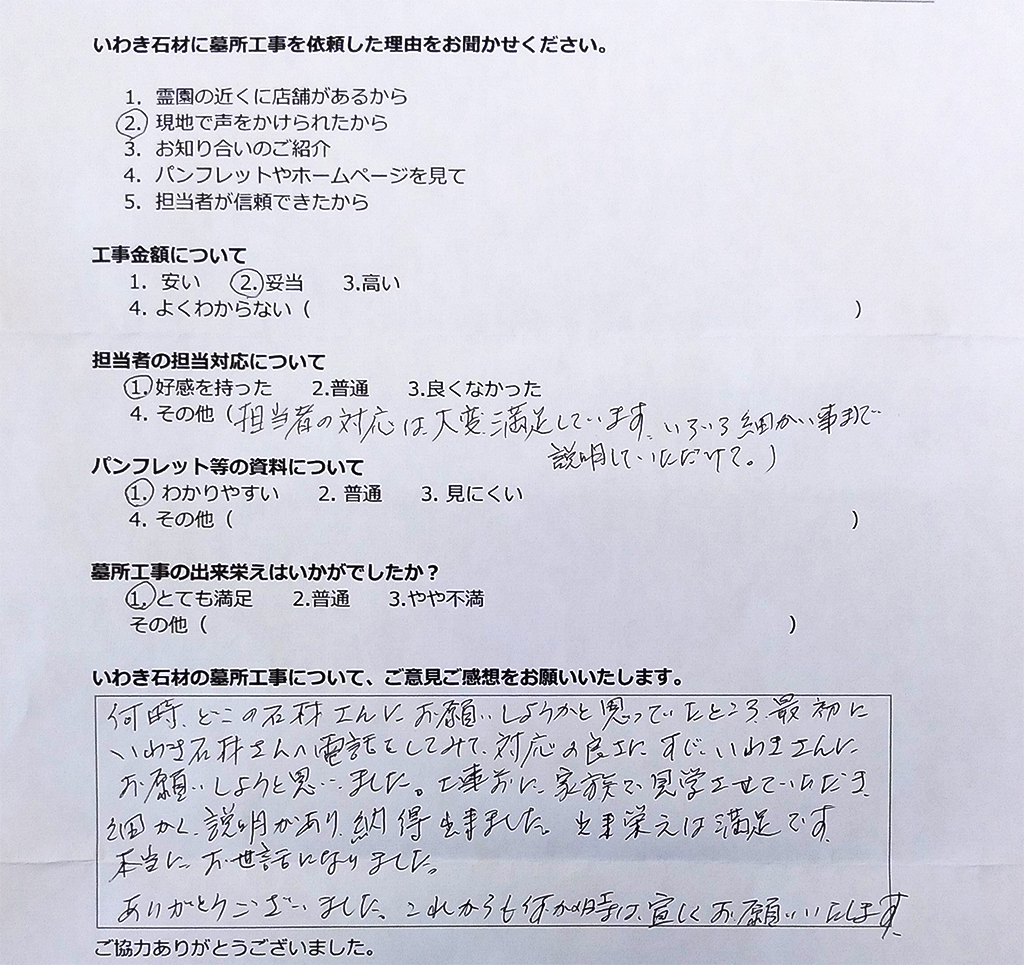 いわき石材に墓所工事を依頼した理由をお聞かせください。
1. 霊園の近くに店舗があるから
2. 現地で声をかけられたから
3. お知り合いのご紹介
4. パンフレットやホームページを見て
5. 担当者が信頼できたから
工事金額について
1. 安い 2.妥当 3.高い
4. よくわからない（ ）
担当者の担当対応について
1.好感を持った 2.普通 3.良くなかった
4. その他（担当者の対応は、大変、満足しています。いろいろ細かい事まで
説明していただけて。）
パンフレット等の資料について
1. わかりやすい 2. 普通 3. 見にくい
4. その他（ ）
墓所工事の出来栄えはいかがでしたか？
1.とても満足 2.普通 3.やや不満
その他（ ）
いわき石材の墓所工事について、ご意見ご感想をお願いいたします。
何時、どこの石材さんに、お願いしようかと思っていたところ、最初に
いわき石材さんへ電話をしてみて、対応の良さに、すぐ、いわきさんに
お願いしようと思いました。工事前に、家族で見学させていただき、
細かく、説明があり、納得出来ました。出来栄えは満足です。
本当に、お世話になりました。
ありがとうございました。これからも何かの時は、宜しくお願いいたします。
ご協力ありがとうございました。